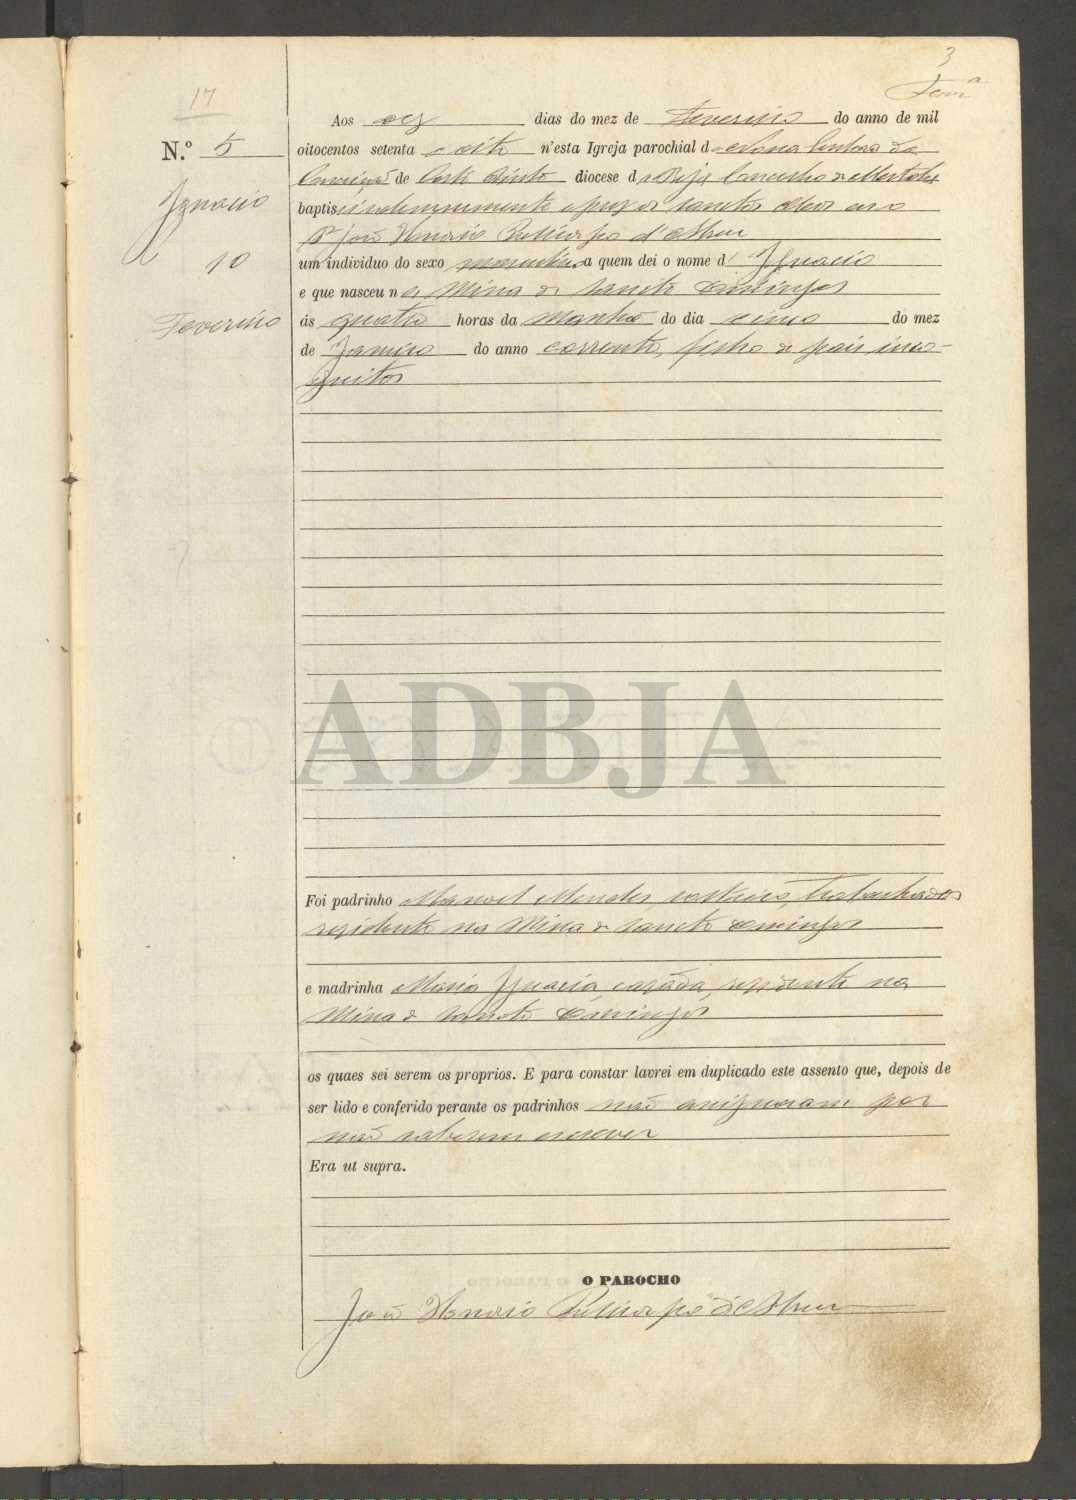 3
17
Aos dez dias do mez de Fevereiro do anno de mil
N.º 5 oitocentos setenta e oito n'esta Igreja parochial de Nossa Senhora da
Conceição de Corte Pinto diocese de Beja Concelho de Mertola
Ignacio
baptisei solemnemente e puz os sanctos oleos
João Policarpo d'Abreu
10
um individuo do sexo masculino a quem dei o nome d' Ignacio
e que nasceu na Mina de Sancto Domingos
Fevereiro
ás quatro horas da manhã do dia cinco do mez
de Janeiro do anno corrente, filho de pais inco-
gnitos
ADBJA
Foi padrinho Manoel Mendes solteiro, trabalhador
residente na Mina de Sancto Domingos
e madrinha Maria Ignacia, casada, residente na
Mina de Sancto Domingos
os quaes sei serem os proprios. E para constar lavrei em duplicado este assento que, depois de
ser lido e conferido perante os padrinhos não assignaram por
não saberem escrever
Era ut supra.
O PAROCHO
João Policarpo d'Abreu